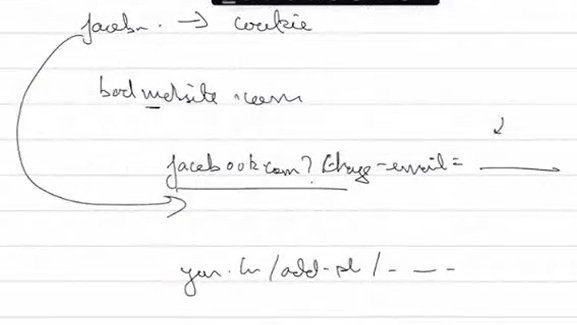 facebn. → cookie
badwebsite.com
facebook.com?change-email=
/add-pl/- - -